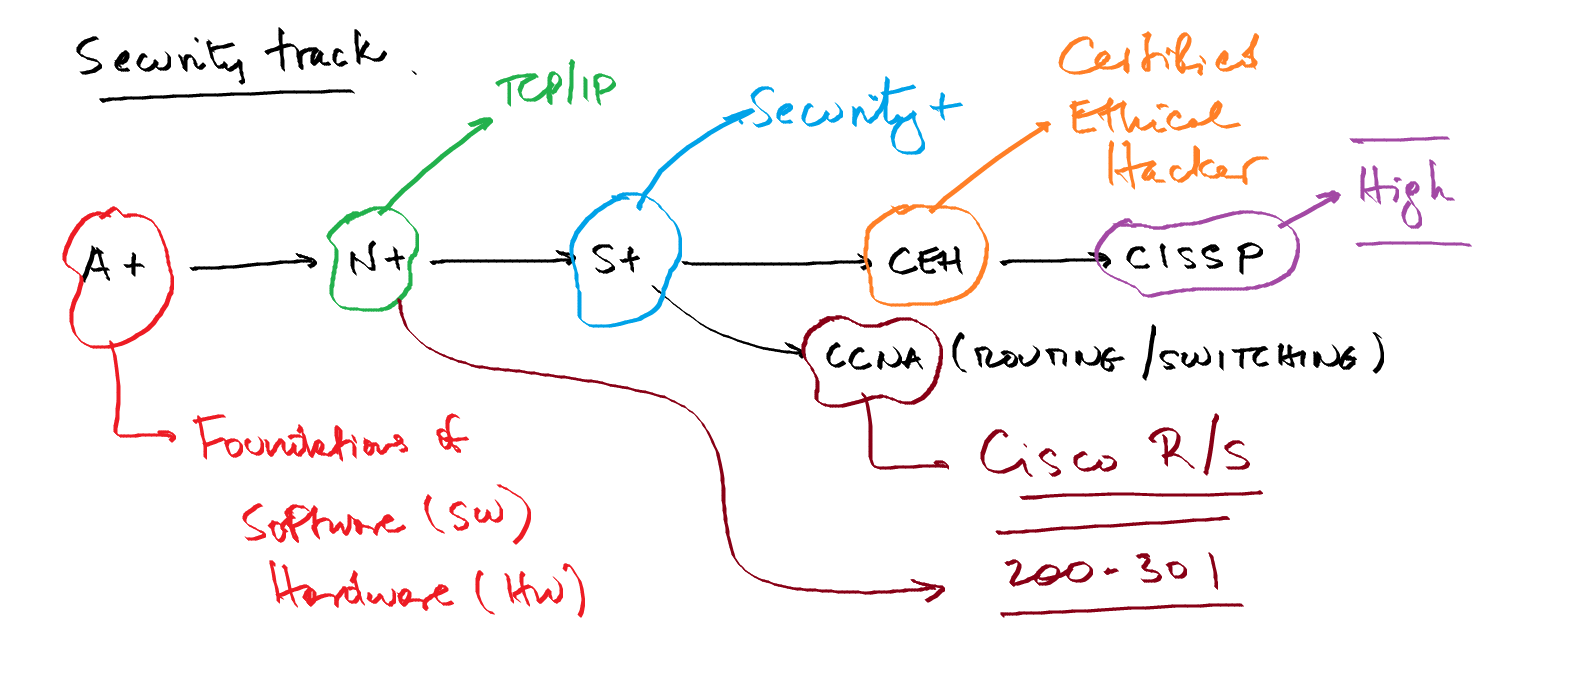 Security track.
TCP/IP
Security+
Certified
Ethical
Hacker
High
A+
N+
S+
CEH
CISSP
CCNA (ROUTING/SWITCHING)
Foundations of
Software (SW)
Hardware (HW)
Cisco R/S
200-301